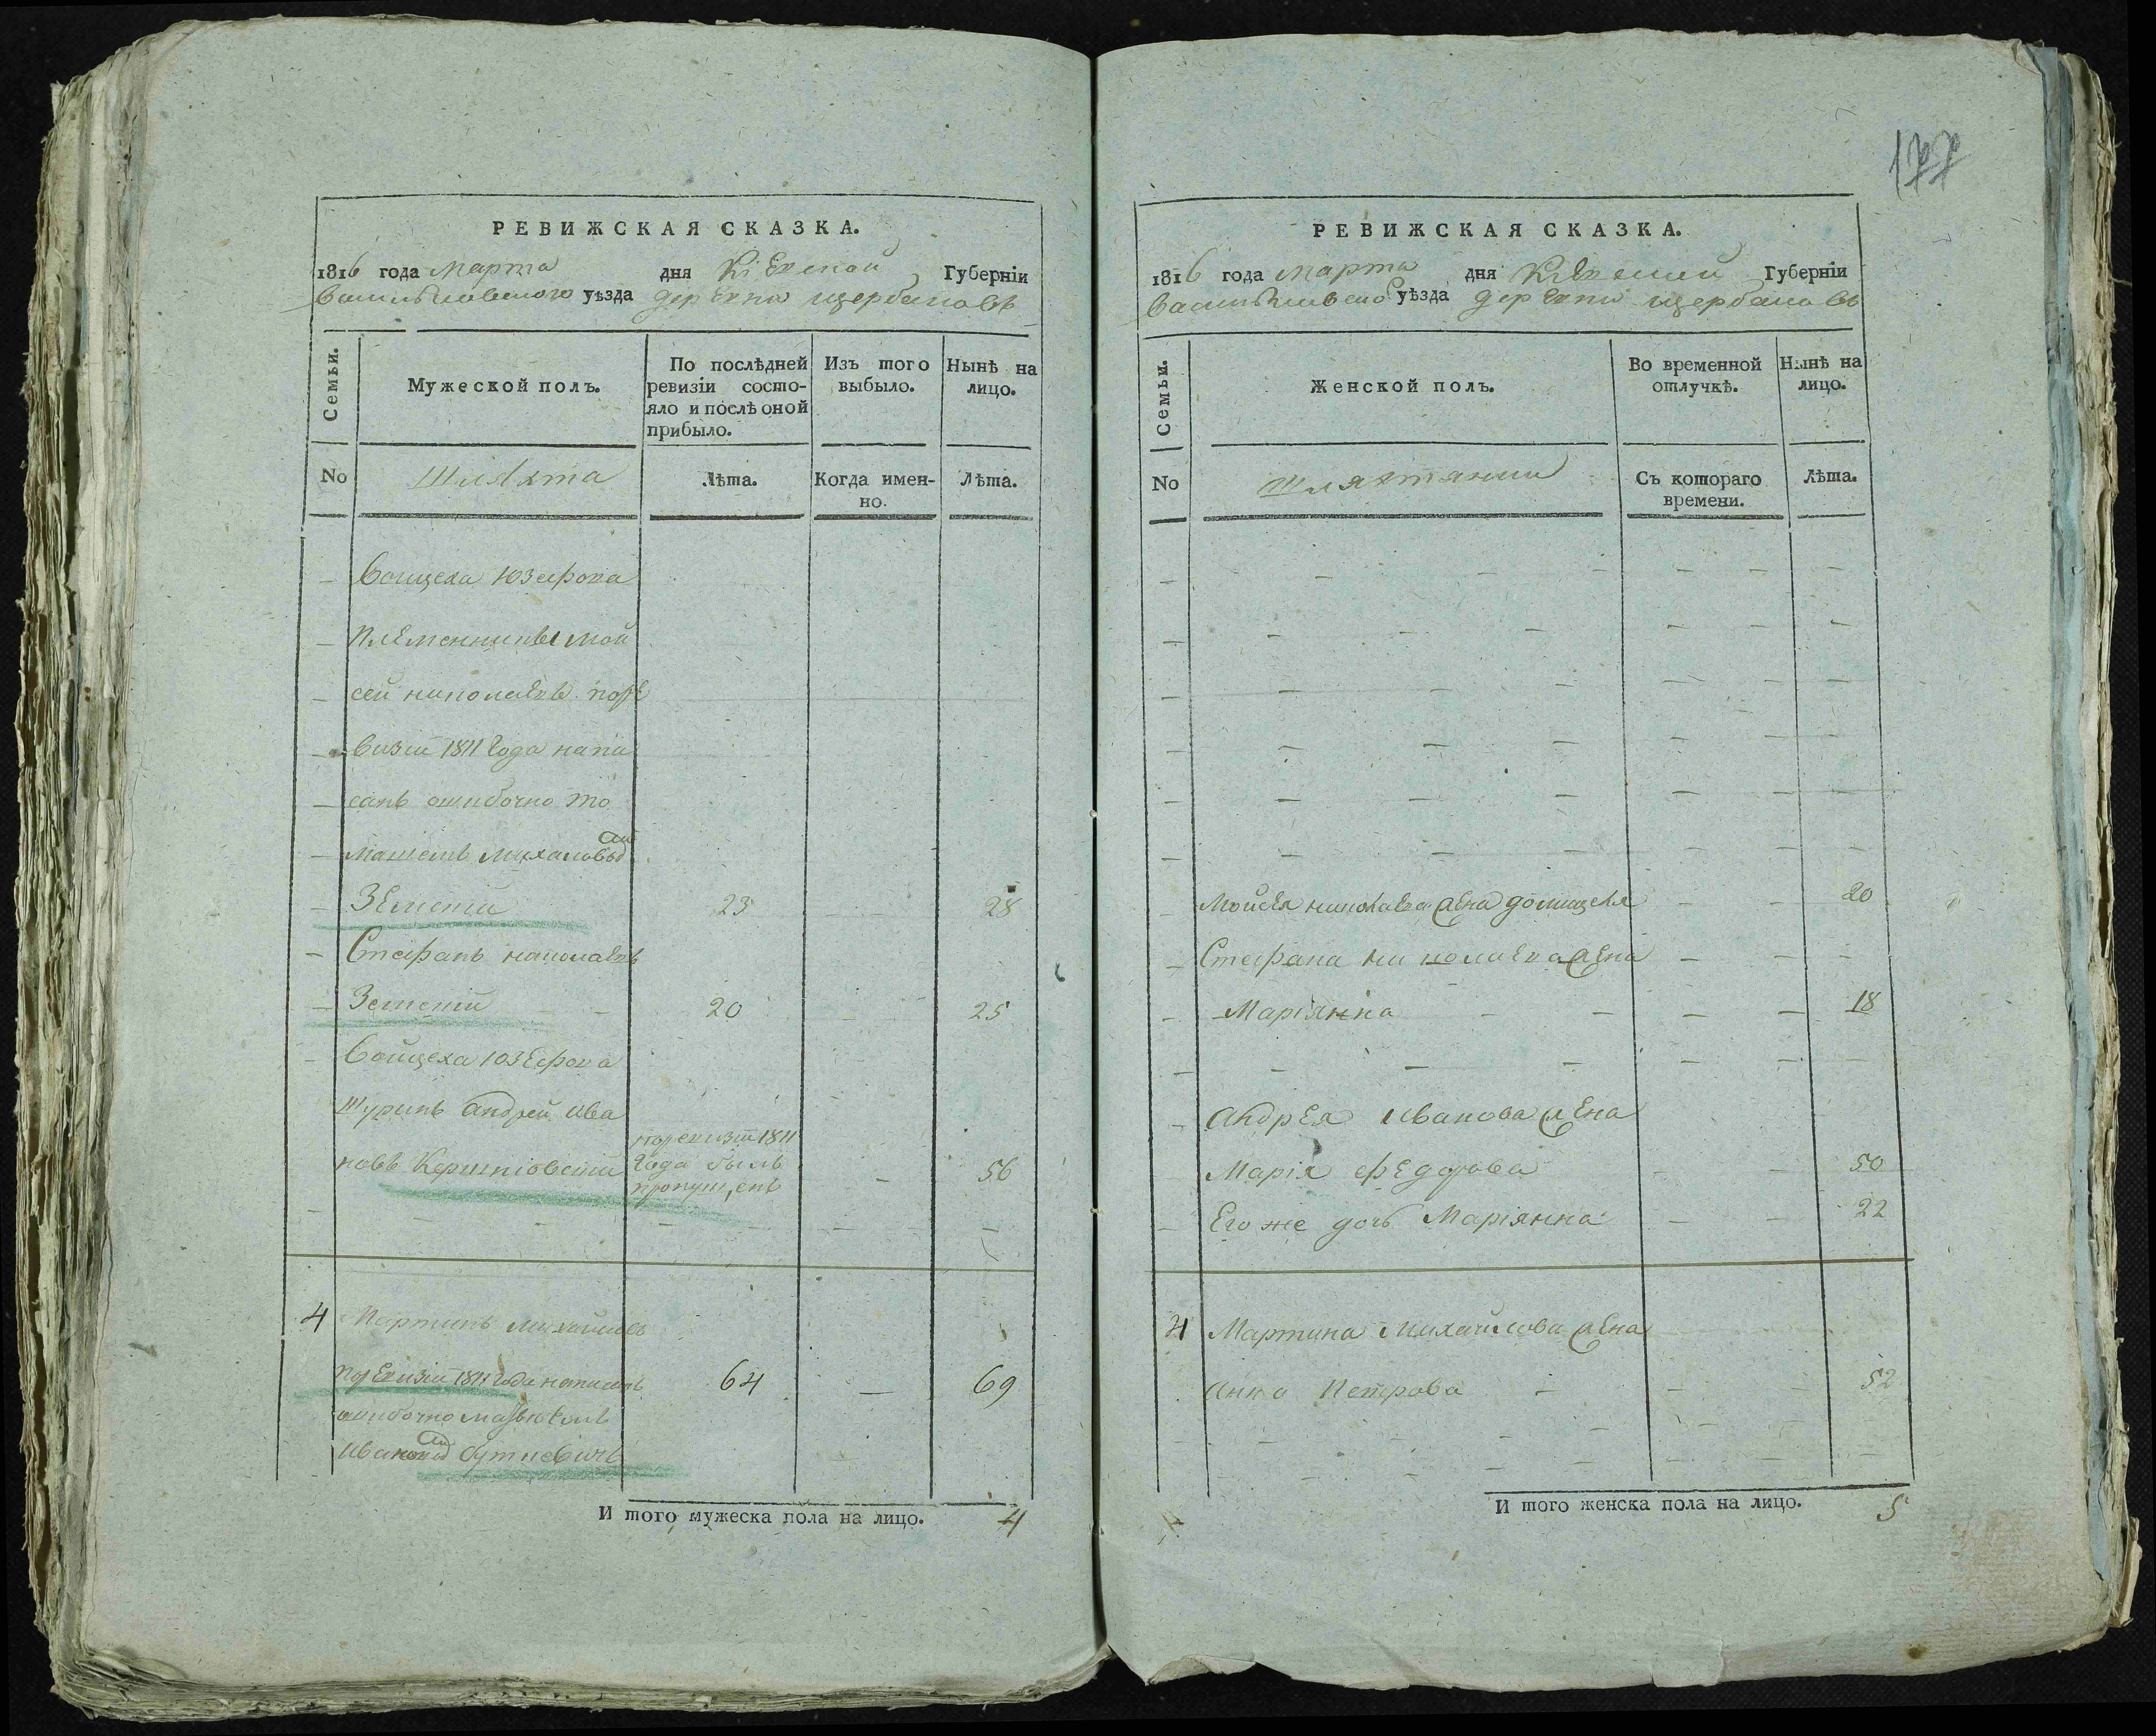 177
РЕВИЖСКАЯ СКАЗКА.
1816 года Марта дня Кіевской Губерніи
Васильковского уѣзда деревни щербановъ
Семьи.
Мужеской полъ.
По послѣдней ревизіи состояло и послѣ оной прибыло.
Изъ того выбыло.
Нынѣ на лицо.
No
Шляхта
Лѣта.
Когда именно.
Лѣта.
Войцеха Юзефова
племенникъ мой
сей николаевъ поре
визіи 1811 года напи
санъ ошибочно то
машемъ михаловы
23 28
Стефанъ николаевъ
20 25
Войцеха Юзефова
Шуринъ андрей ива
новъ поревизіи 1811
года былъ
пропущенъ 56
4 Мартинъ михайловъ
поревизіи 1811 года написанъ 64 — 69
ошибочно
И того мужеска пола на лицо. 4
РЕВИЖСКАЯ СКАЗКА.
1816 года марта дня Кіевской Губерніи
Васильковского уѣзда деревни щербановъ
Семьи.
Женской полъ.
Во временной отлучкѣ.
Нынѣ на лицо.
No
Шляхтянки
Съ котораго времени.
Лѣта.
Мойсея николаева жена домицеля 20
Стефана николаева жена
Маріянна 18
андрея иванова жена
Марія федорова 50
Его же дочь Маріянна 22
4 Мартина михайлова жена
анна петрова 52
И того женска пола на лицо. 5